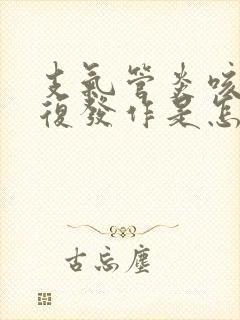 支氣管炎咳
復發作是怎
古忘塵